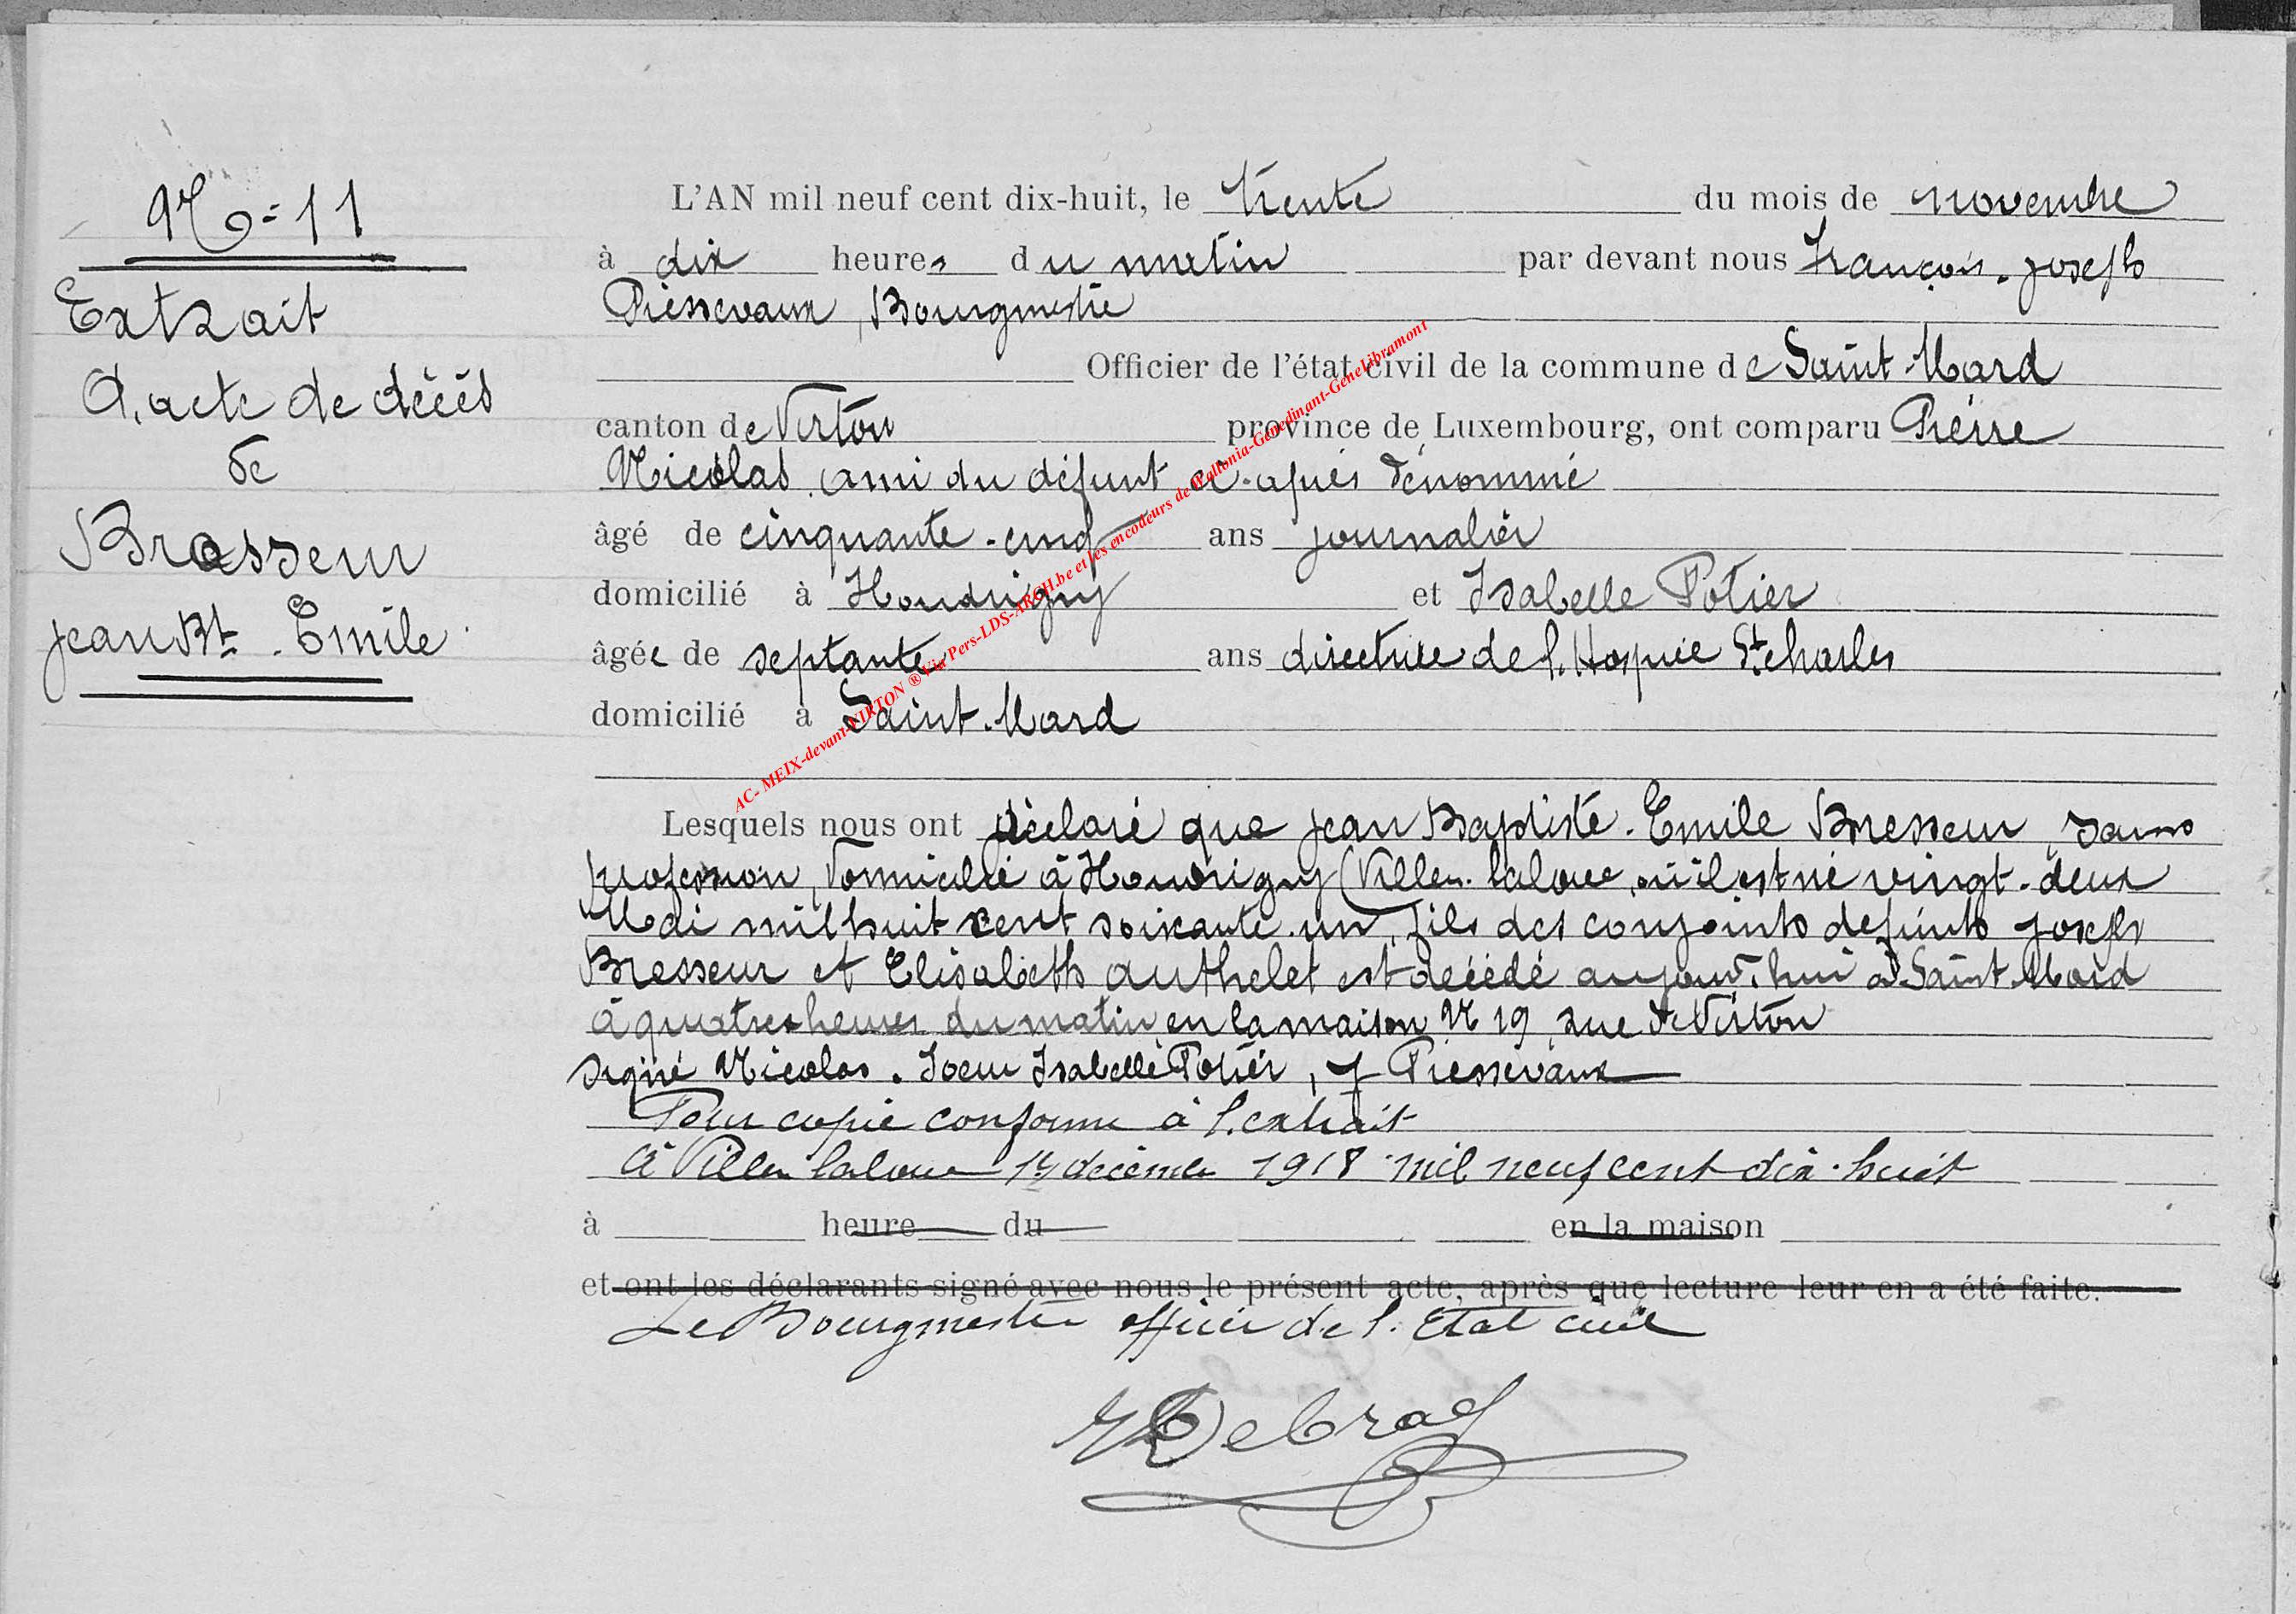 No = 11
Extrait
d'acte de décès
de
Brasseur
Jean Bt - Emile
L'AN mil neuf cent dix-huit, le trente du mois de novembre
à dix heures du matin par devant nous François-Joseph
Piessevaux, Bourgmestre
Officier de l'état civil de la commune de Saint-Mard
canton de Virton province de Luxembourg, ont comparu Pierre
Nicolas, ami du défunt ci-après dénommé
âgé de cinquante-cinq ans journalier
domicilié à Houdrigny et Isabelle Potier
âgée de septante ans directrice de l'Hospice St charles
domicilié à Saint-Mard
Lesquels nous ont déclaré que Jean Baptiste-Emile Bresseur, sans
profession, domicilié à Houdrigny (Villers-laloue, où il est né vingt-deux
Mai mil huit cent soixante-un, fils des conjoints défunts Joseph
Bresseur et Elisabeth Authelet est décédé aujourd'hui à Saint-Mard
à quatre heures du matin, en la maison N 19, rue de Virton
signé Nicolas. Soeur Isabelle Potier, J Piessevaux
Pour copie conforme à l'extrait
à Villers laloue décembre 1918 mil neuf cent dix-huit
à heure du en la maison
et ont les déclarants signé avec nous le présent acte, après que lecture leur en a été faite.
Le Bourgmestre officier de l'Etat civil
AC- MEIX-devant-VIRTON ® Via Pers-LDS-ARCH.be et les encodeurs de Wallonia-Genedinant-GeneLibramont